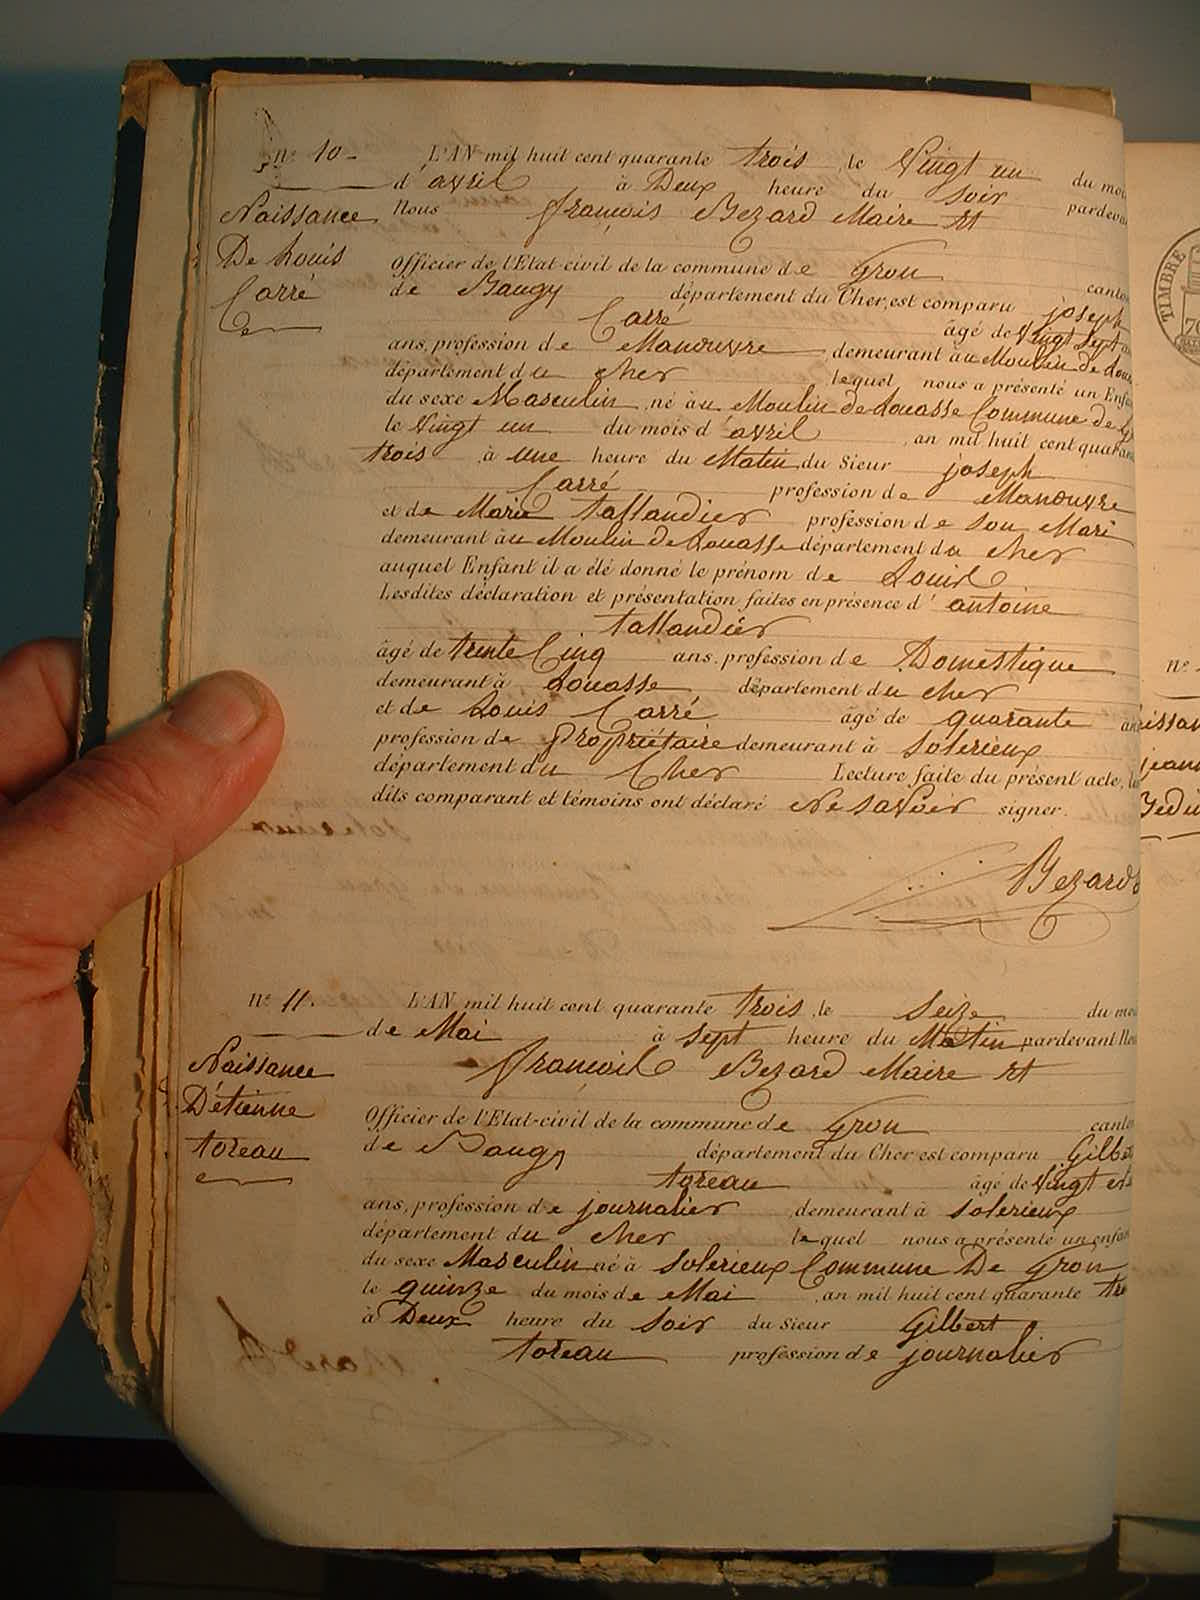 n° 10 -
L'AN mil huit cent quarante trois, le Vingt un du moi
d'avril à Deux heure du Soir pardeva
Nous François Bezard Maire et
Naissance
De Louis
Carré
Officier de l'Etat-civil de la commune de Gron canton
de Baugy département du Cher, est comparu joseph
Carré âgé de Vingt Sept
ans, profession de Manouvre, demeurant au Moulin de
département du Cher lequel nous a présenté un Enfa
du sexe Masculin, né au Moulin de Louasse Commune de
le Vingt un du mois d'avril, an mil huit cent quaran
trois, à une heure du Matin du Sieur joseph
Carré profession de Manouvre
et de Marie tallandier profession de Son Mari
demeurant au Moulin de Louasse département du Cher
auquel Enfant il a été donné le prénom de Louis
Lesdites déclaration et présentation faites en présence d'antoine
tallandier
âgé de trente Cinq ans, profession de Domestique
demeurant à Louasse département du Cher
et de Louis Carré âgé de quarante an
profession de Propriétaire demeurant à Solerieux
département du Cher Lecture faite du présent acte, les
dits comparant et témoins ont déclaré Ne Savoir signer.
Bezard
n° 11.
L'AN mil huit cent quarante trois, le Seize du moi
de Mai à Sept heure du Matin pardevant Nou
François Bezard Maire et
Naissance
D'étienne
toreau
Officier de l'Etat-civil de la commune de Gron canton
de Baugy département du Cher est comparu Gilbert
toreau âgé de Vingt
ans, profession de journalier, demeurant à Solerieux
département du Cher lequel nous a présenté un enfan
du sexe Masculin né à Solerieux Commune De Gron
le quinze du mois de Mai, an mil huit cent quarante tro
à Deux heure du Soir du Sieur Gilbert
toreau profession de journalier
TIMBRE
n°
aissan
jeann
Bedu